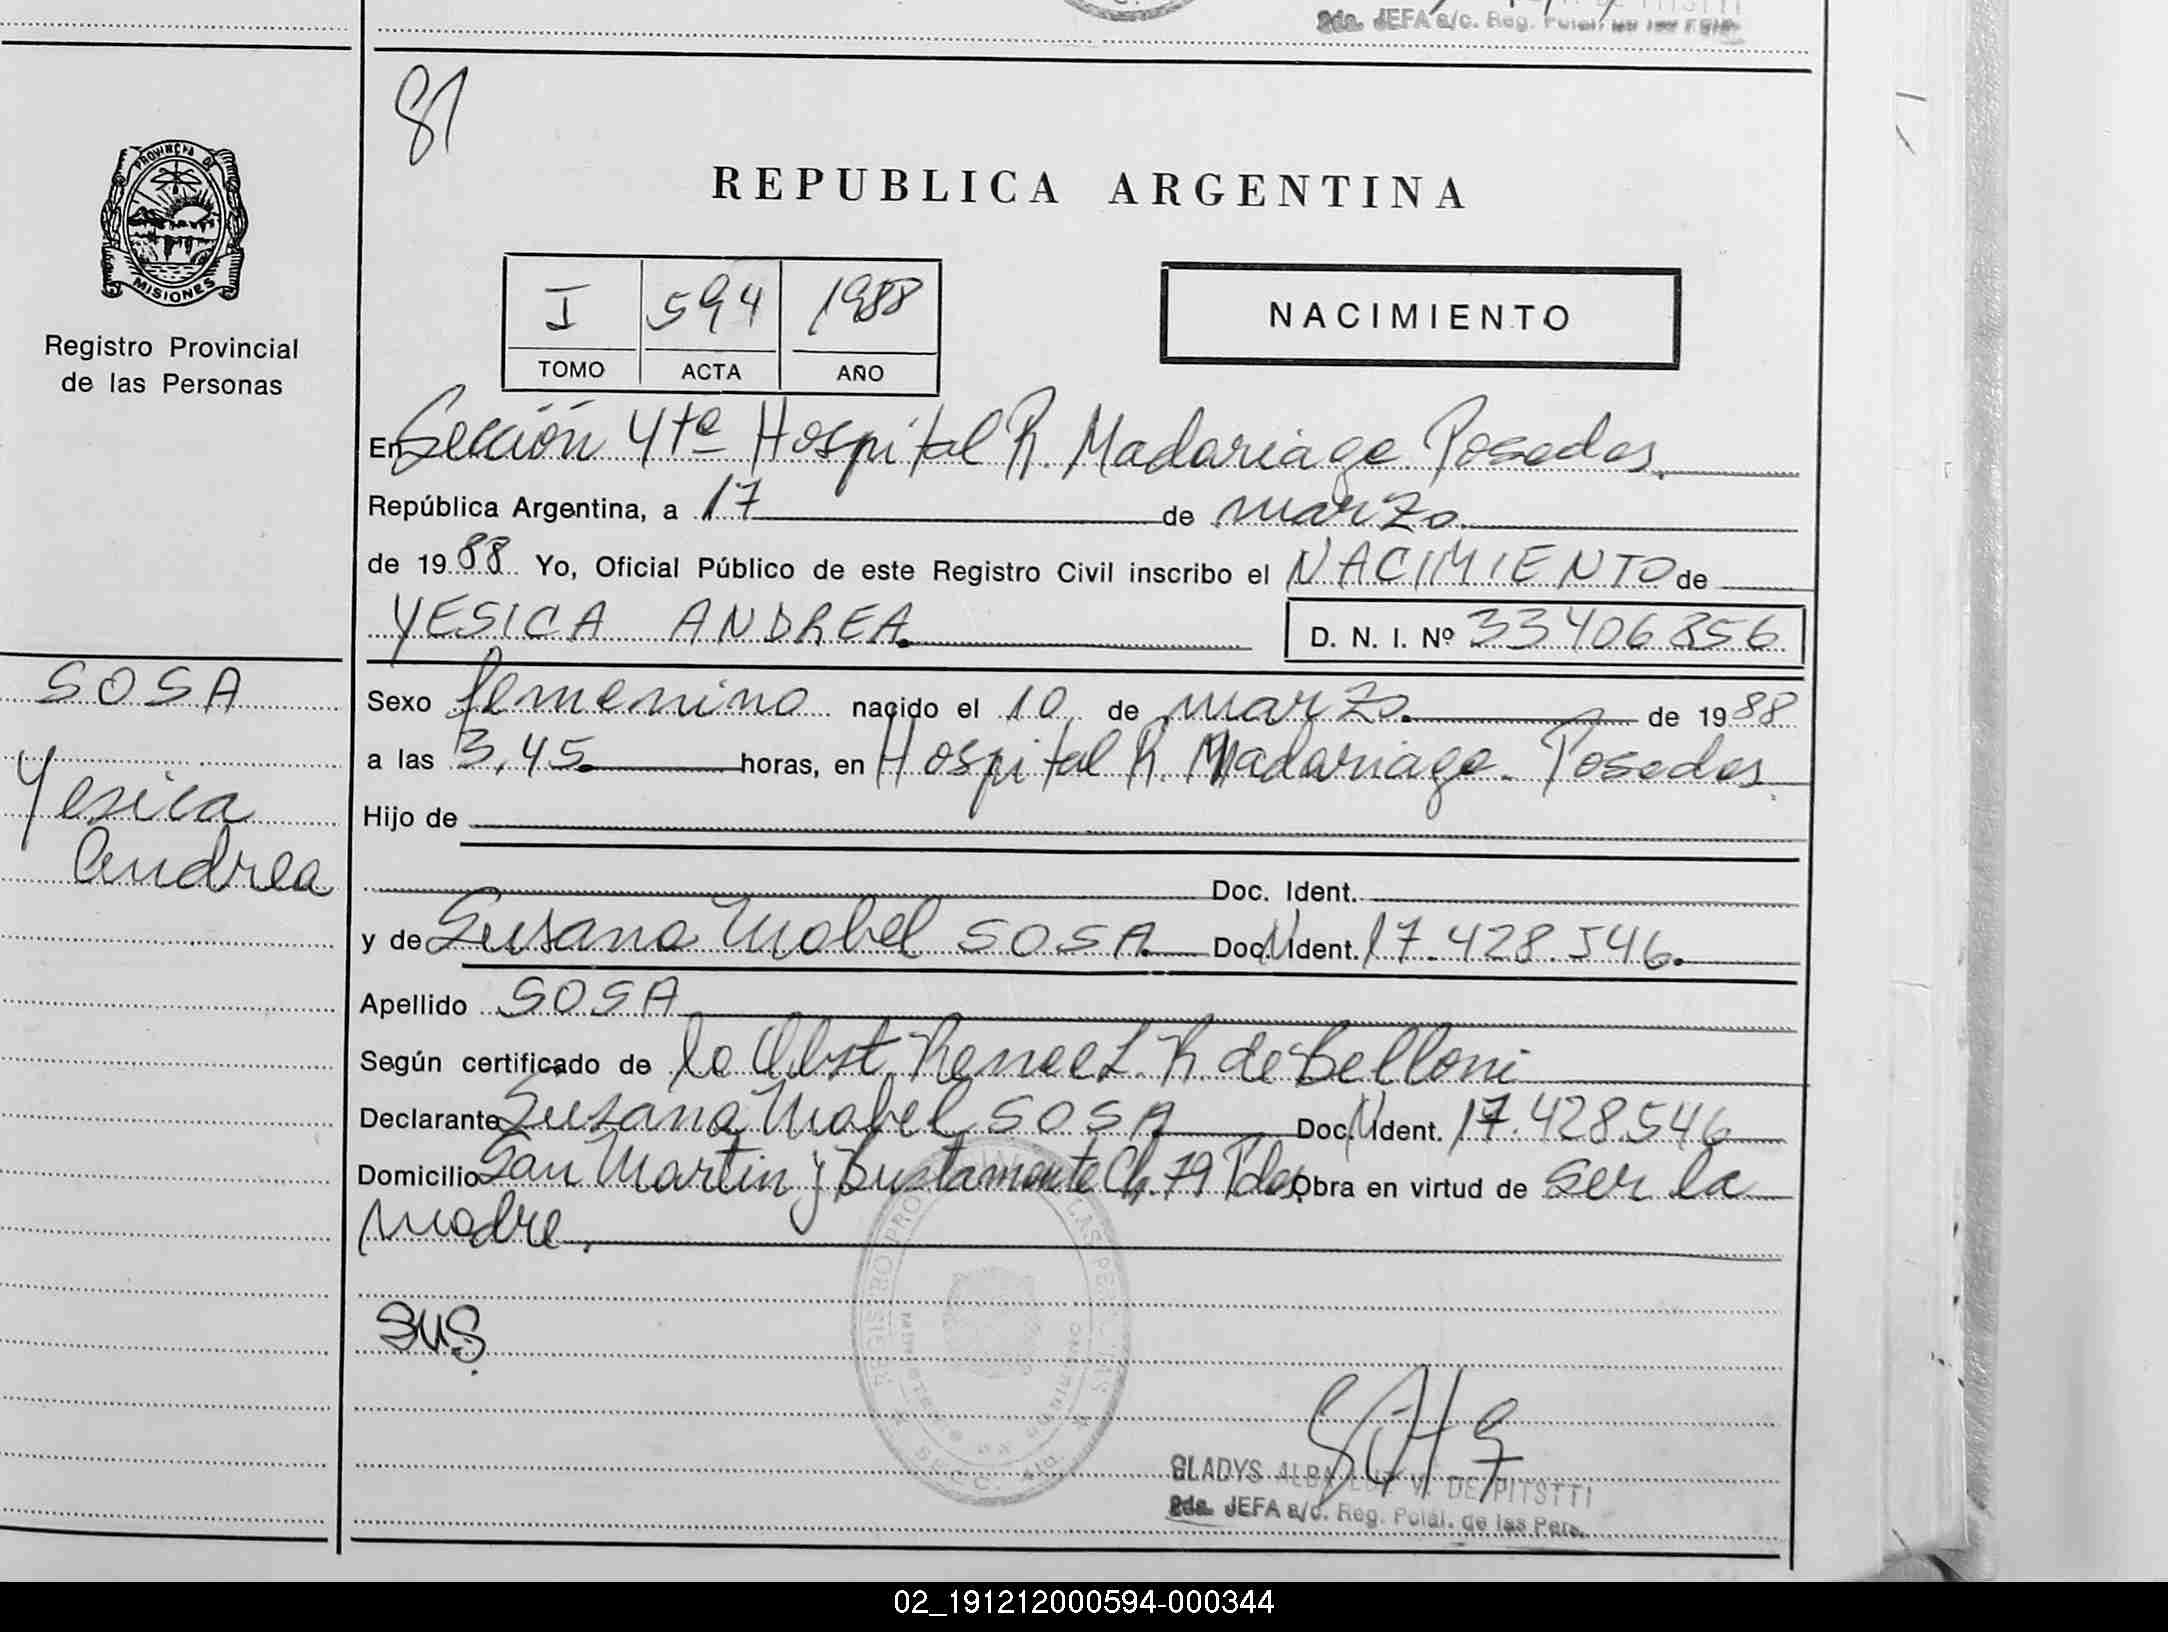 2da. JEFA a/c. Reg.
81
PROVINCIA DE
MISIONES
Registro Provincial
de las Personas
REPUBLICA ARGENTINA
I 594 1988
TOMO ACTA AÑO
NACIMIENTO
En Sección 4ta Hospital R. Madariaga. Posadas.
República Argentina, a 17 de marzo
de 1988 Yo, Oficial Público de este Registro Civil inscribo el NACIMIENTO de
YESICA ANDREA. D. N. I. Nº 33406356
SOSA
Yesica
Andrea
Sexo femenino nacido el 10 de marzo. de 1988
a las 3,45. horas, en Hospital R. Madariaga. Posadas.
Hijo de
Doc. Ident.
y de Susana Mabel SOSA. Doc. N Ident. 17.428.546.
Apellido SOSA
Según certificado de la Obst. Renee L. R. de Belloni
Declarante Susana Mabel SOSA Doc. N Ident. 17.428.546
Domicilio San Martin y Bustamante Ch. 79 Pdas. Obra en virtud de ser la
madre.
SUS.
GLADYS ALBA LUZ V. DE PITSTTI
2da. JEFA a/c. Reg. Pcial. de las Pers.
02_191212000594-000344